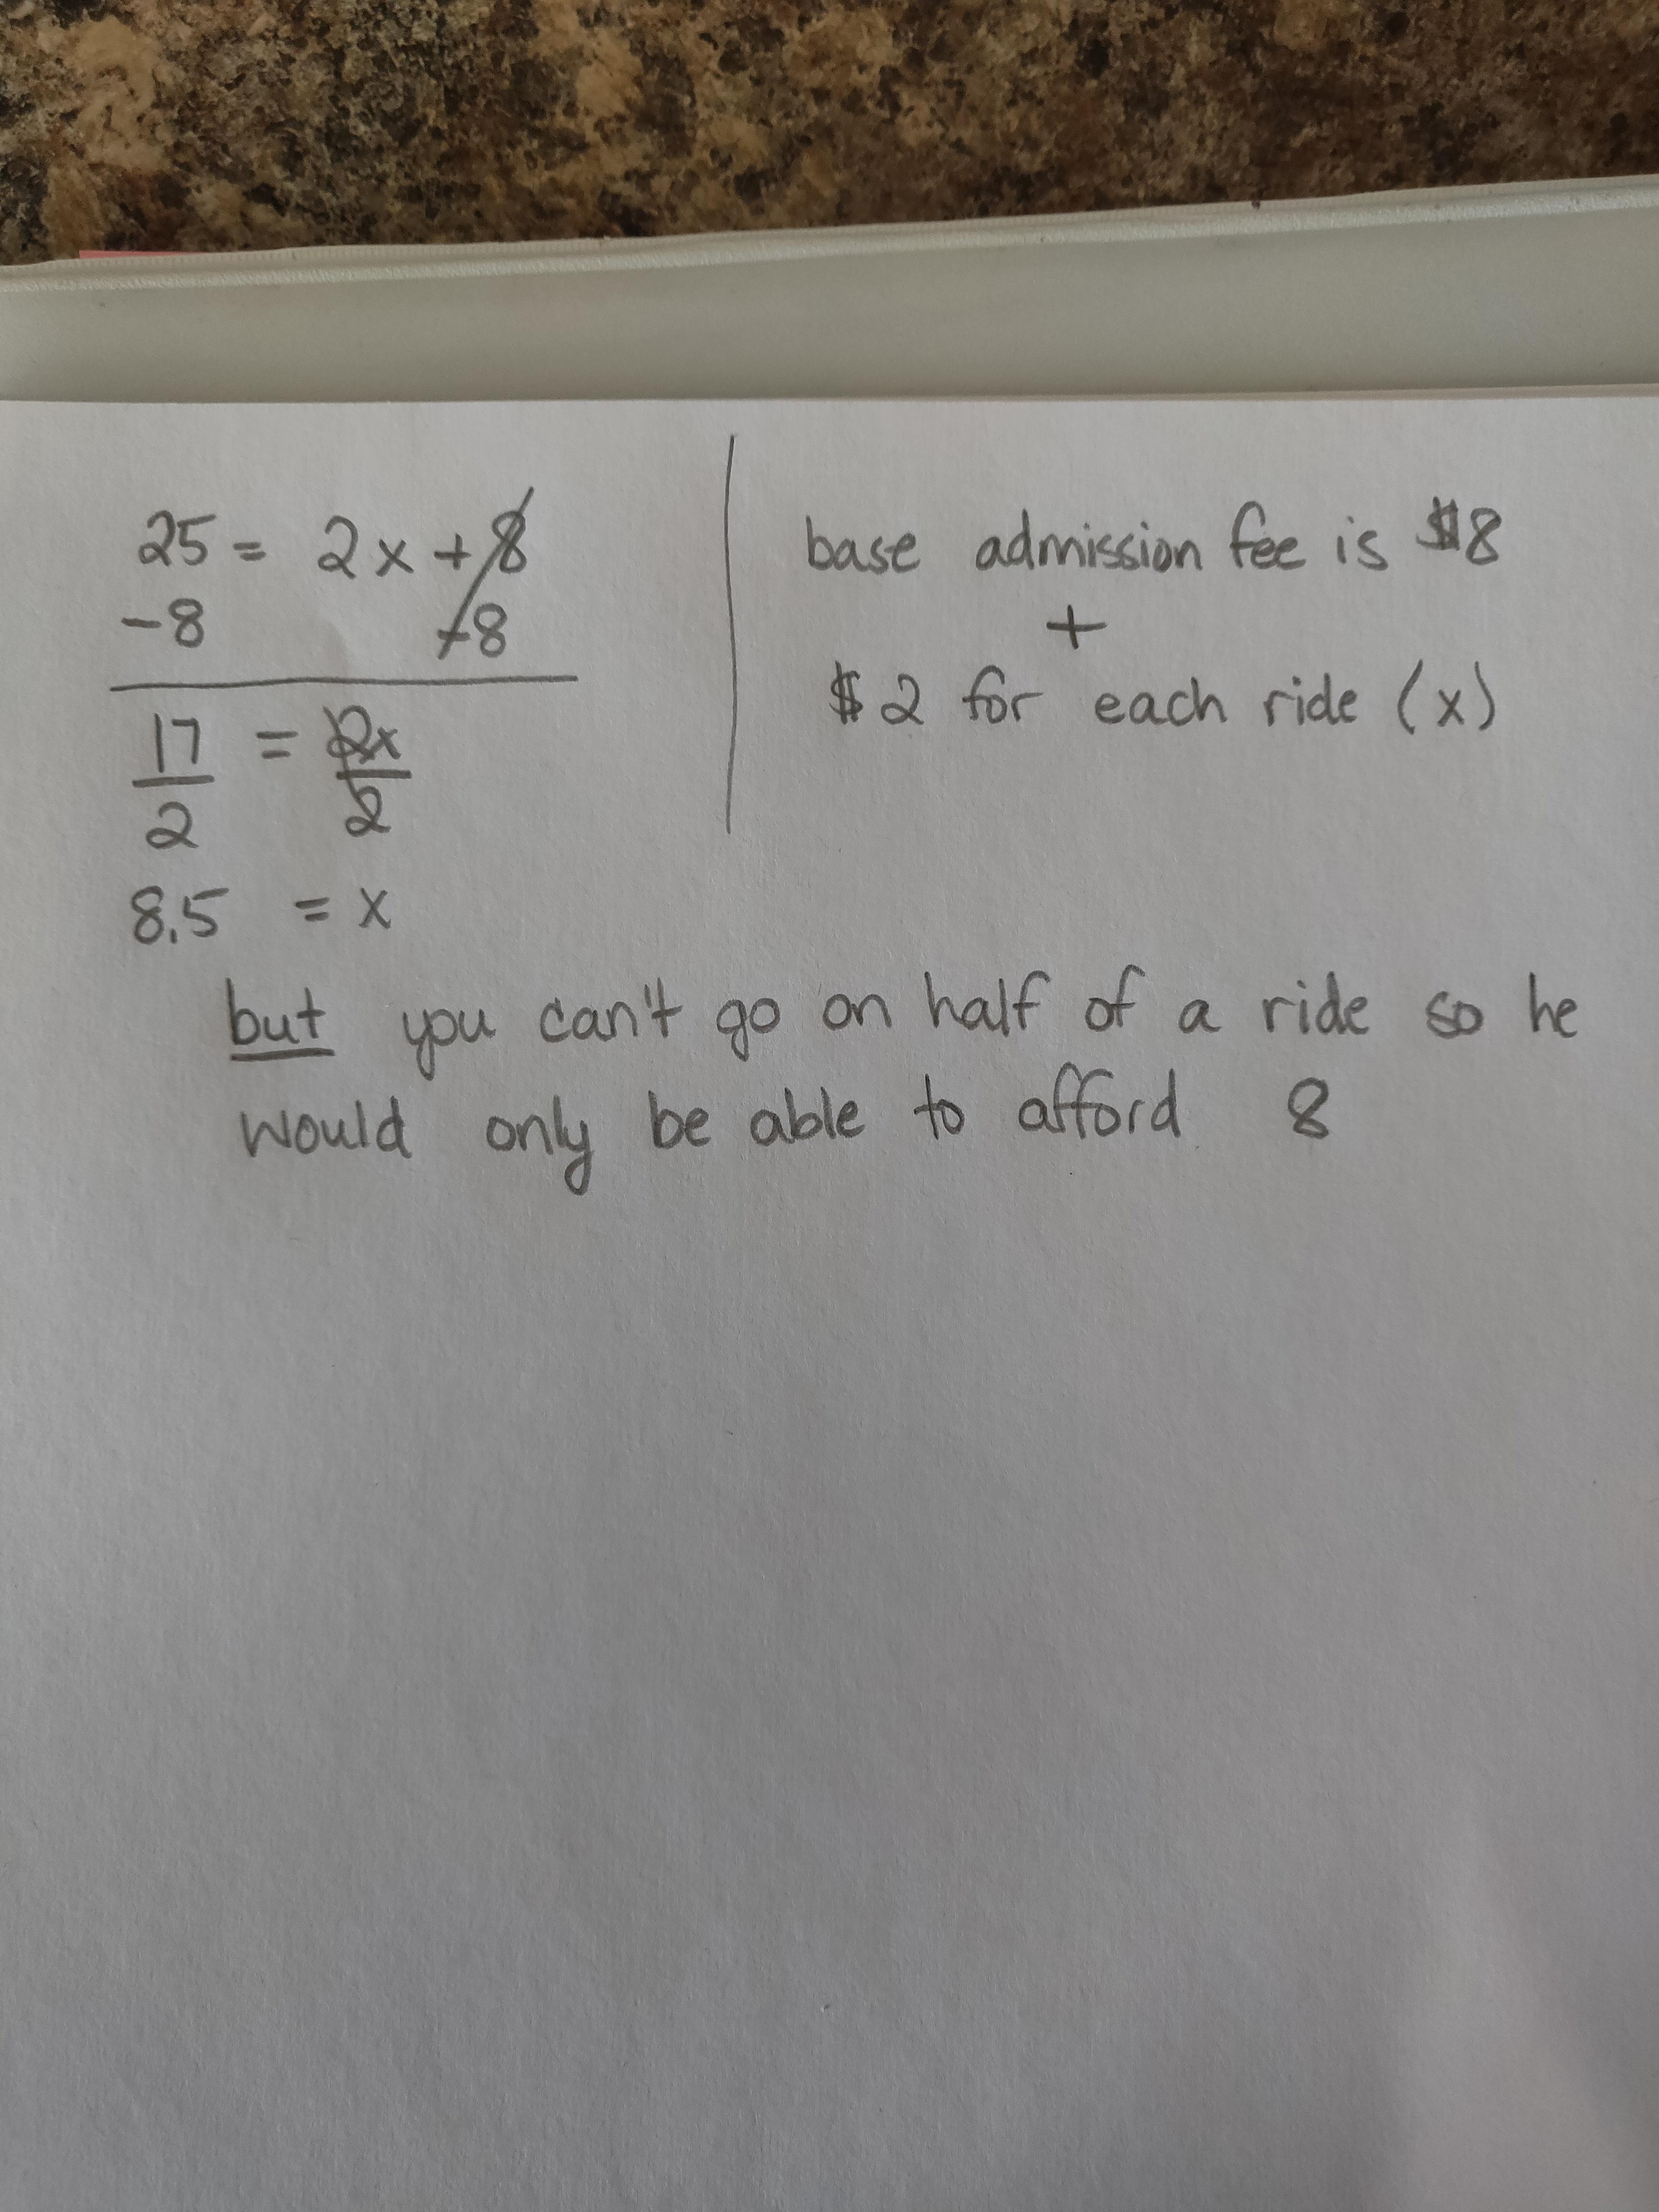 25 = 2x + 8
-8 -8
17 = 2x
2 2
8.5 = x
base admission fee is $8
+
$2 for each ride (x)
but you can't go on half of a ride so he
would only be able to afford 8